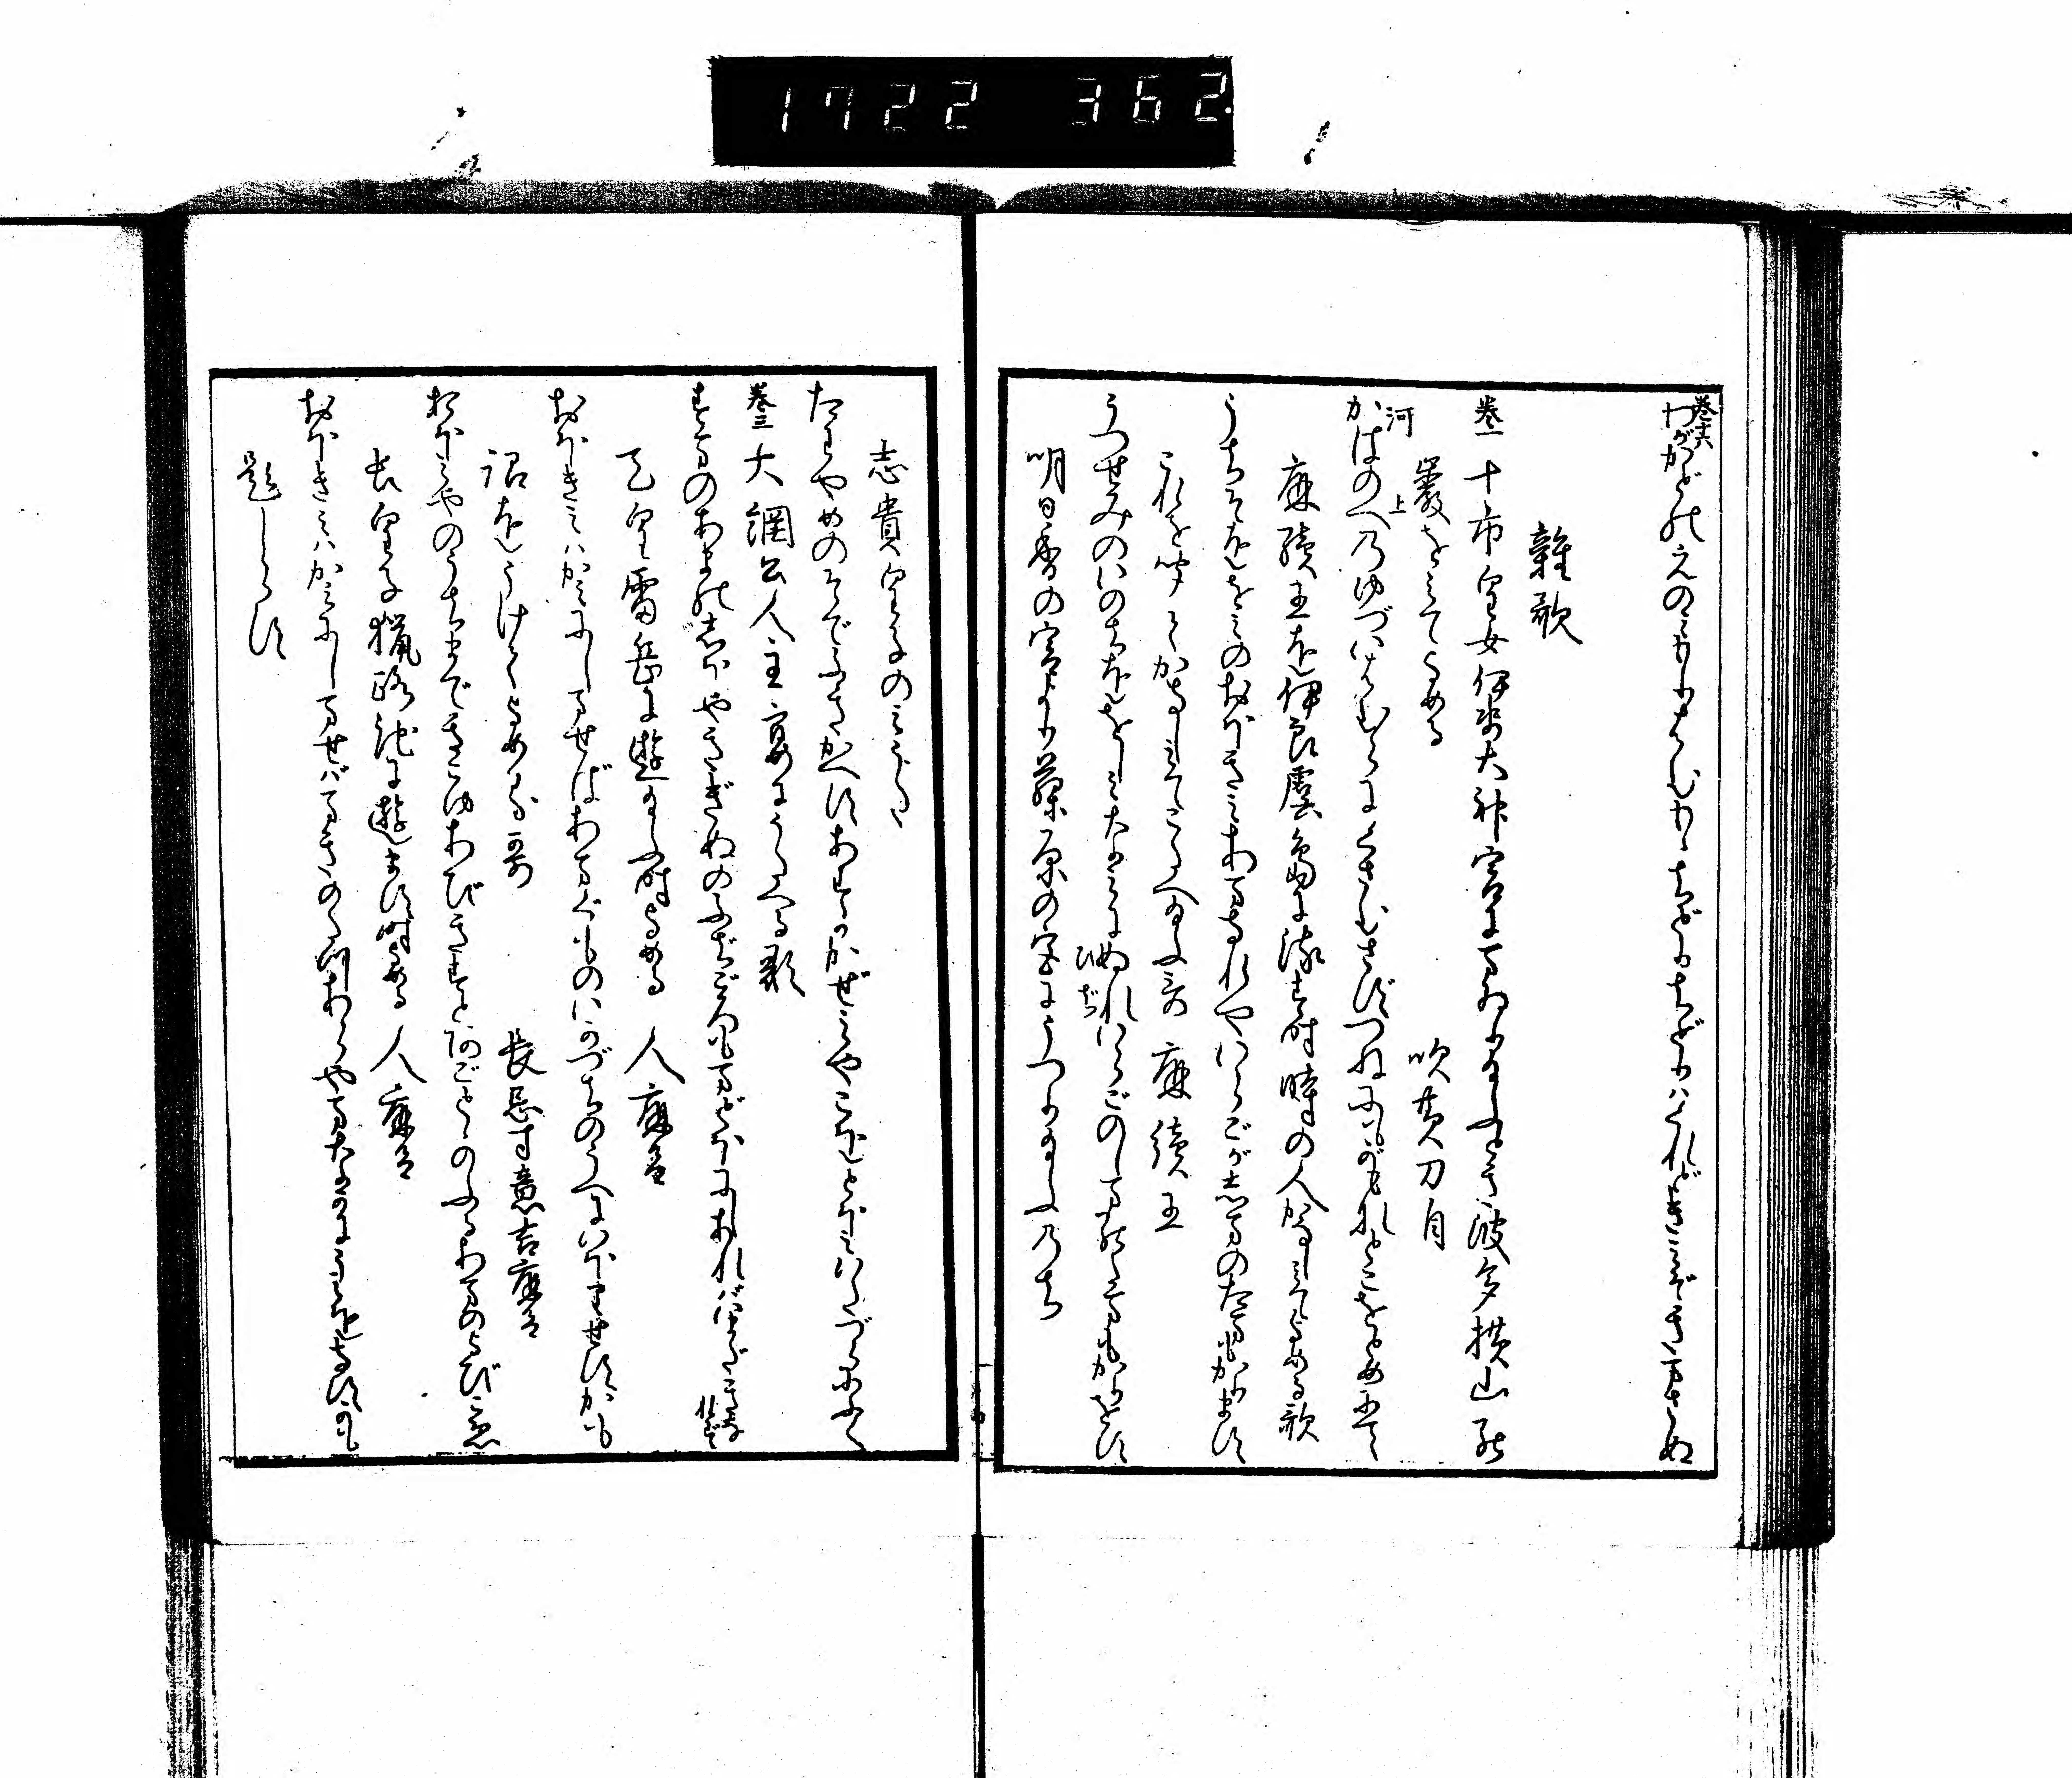 1722 362.
巻十六
わがかどのえのみもりはむもゝちどりちどりはくれどきみぞきまさぬ
雜歌
巻一 十市皇女伊勢大神宮にまゐりたまふとき波多横山の
巖をみてよめる 吹黄刀自
河上
かはのへのゆづいはむらにくさむさずつねにもがもなとこをとめにて
麻續王を伊良虞島に流す時時の人かなしみてよめる歌
うちそをゝみのおほきみあまなれやいらごが志まのたまもかります
これを聞てかなしみてこたへたまふ哥 麻續王
うつせみのいのちををしみなみにぬれいらごのしまのたまもかりをす
ひぢ
明日香の宮より藤原の宮にうつりたまふ乃ち
志貴皇子のみうた
たをやめのそでふきかへすあすかゞぜみやこをとほみいたづらにふく
巻三 大網公人主宴にうたへる歌
すまのあまの志ほやきぎぬのふぢごろもまどほにしあればいまだきなれず
天皇雷岳に遊たまふ時よめる 人麻呂
おほきみはかみにしませばあまぐものいかづちのうへにいほりせすかも
詔をうけてよめる哥 長忌寸意吉麻呂
おほみやのうちまできこゆあびきすとあごとゝのふるあまのよびこゑ
長皇子獵路池に遊ます時よめる 人麻呂
おほきみはかみにしませばまきのたつあらやまなかにうみをなすかも
題しらず